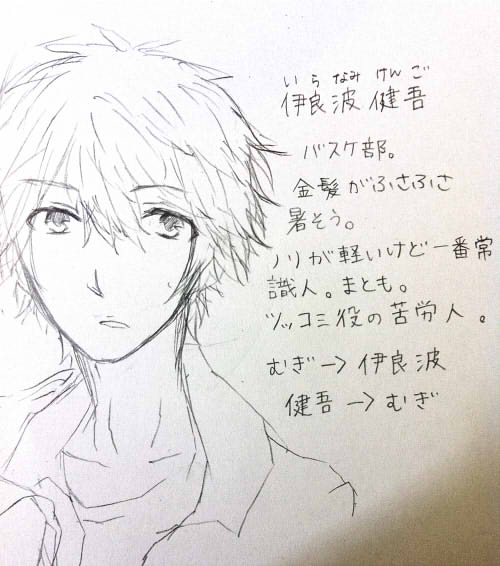 いらなみ けんご
伊良波 健吾
バスケ部。
金髪がふさふさ
暑そう。
ノリが軽いけど一番常
識人。まとも。
ツッコミ役の苦労人。
むぎ→伊良波
健吾→むぎ